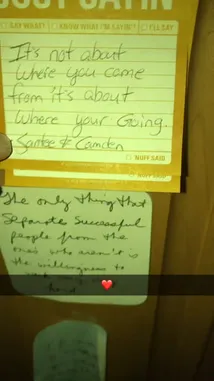 JUST SAYIN'
SAY WHAT?
KNOW WHAT I'M SAYIN'?
I'LL SAY
It's not about
Where you came
from it's about
Where your Going.
Santee & Camden
NUFF SAID
NUFF SAID
The only thing that
separate successful
people from the
ones who aren't is
the willingness to
work very very
hard